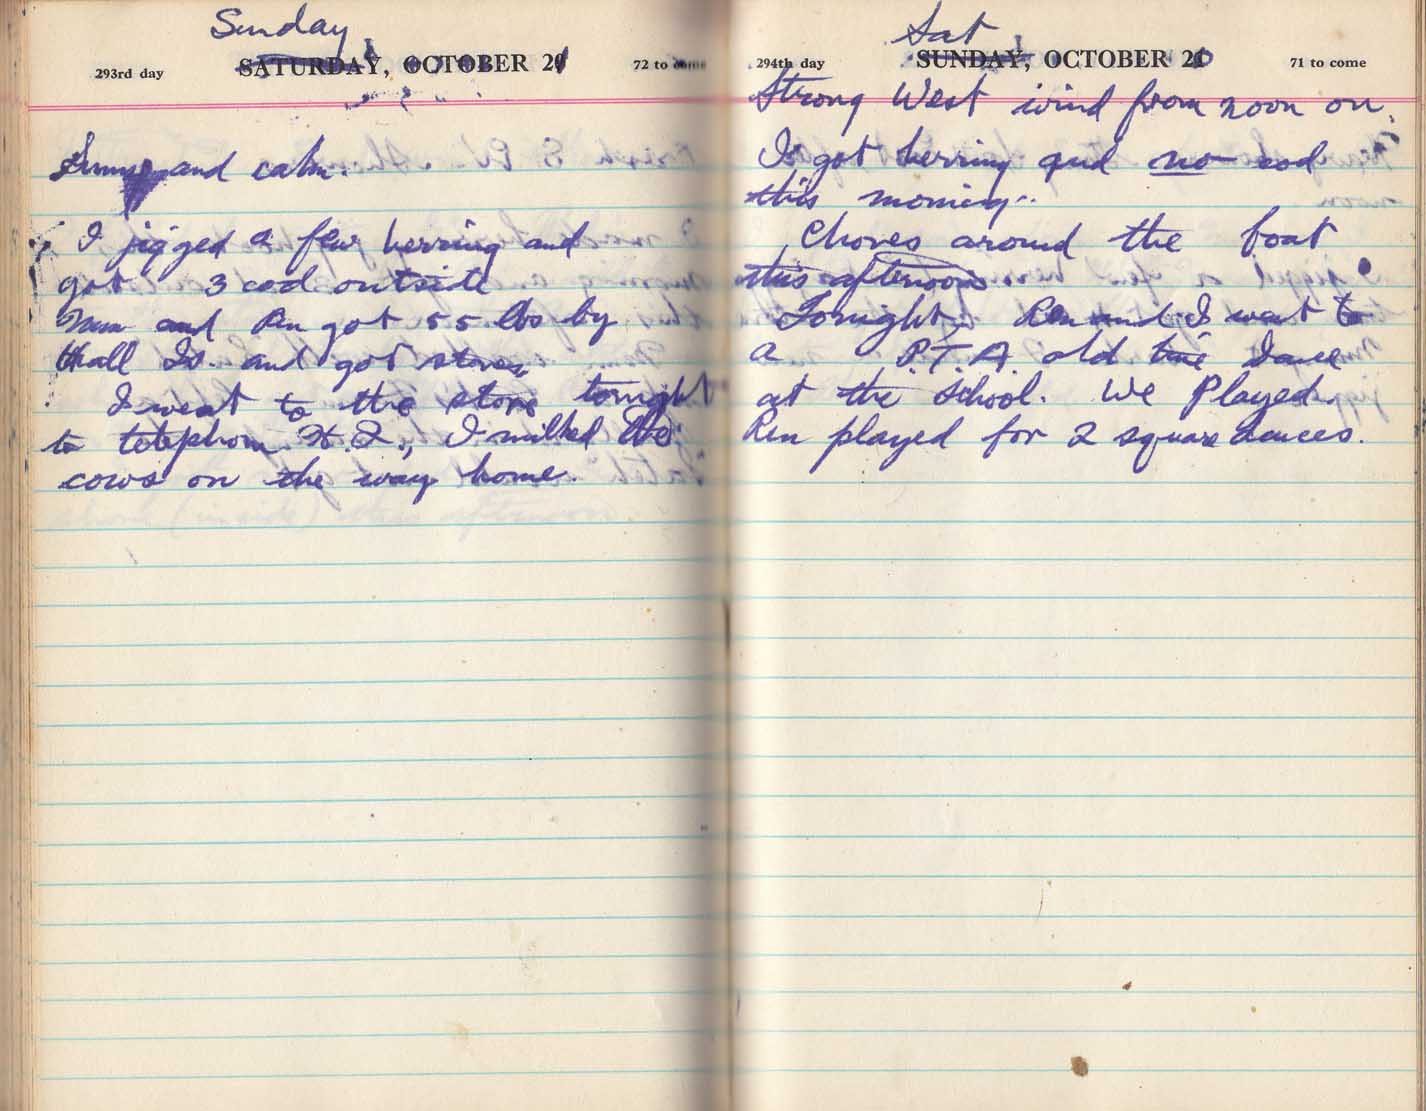 Sunday
293rd day SATURDAY, OCTOBER 21 72 to come
Sunny and calm.
I jigged a few herring and
got 3 cod outside
Mum and Ren got 55 lbs by
Hall Is. and got stores
I went to the store tonight
to telephone H.I., I milked the
cows on the way home.
Sat
294th day SUNDAY, OCTOBER 20 71 to come
Strong West wind from noon on.
I got herring and no cod
this morning.
Chores around the boat
this afternoon.
Tonight, Ren and I went to
a P.T.A. old time dance
at the school. We Played.
Ren played for 2 square dances.